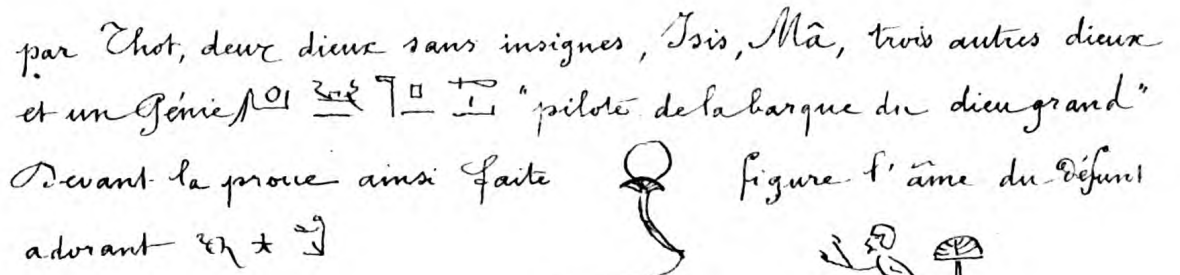 par Thot, deux dieux sans insignes, Isis, Mâ, trois autres dieux
et un Génie "pilote de la barque du dieu grand"
Devant la proue ainsi faite figure l'âme du défunt
adorant